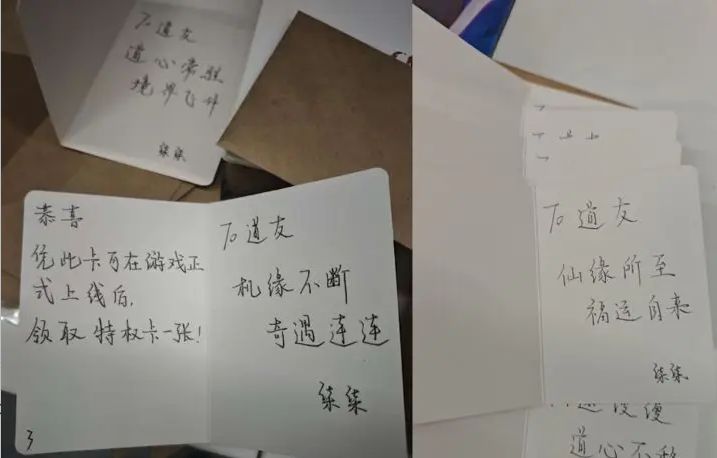 To 道友
道心常驻
境界飞升
柒柒
恭喜
凭此卡可在游戏正
式上线后,
领取 特权卡一张!
3
To 道友
机缘不断
奇遇连连
柒柒
To 道友
仙缘所至
福运自来
柒柒
道心不